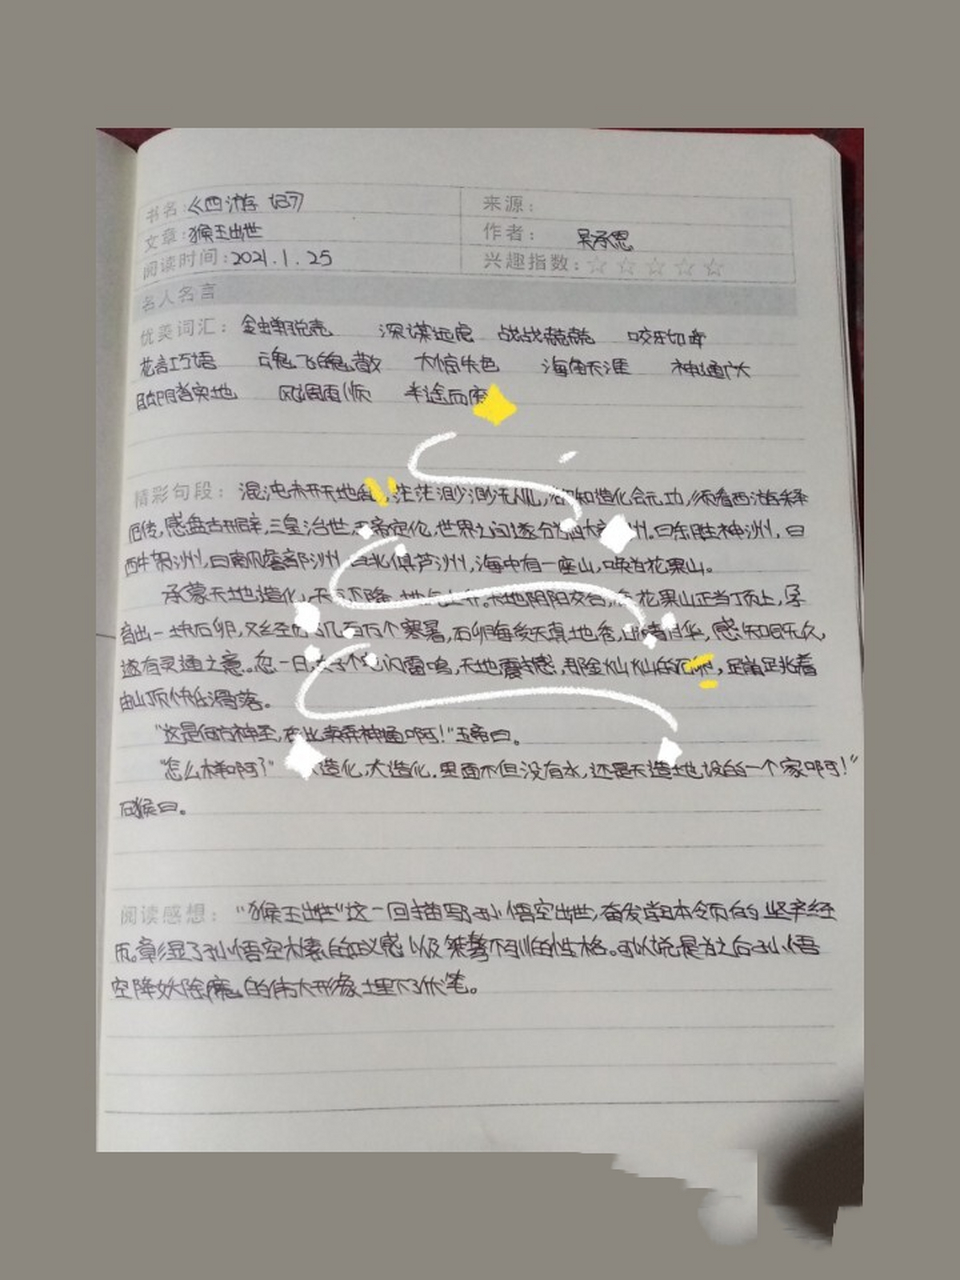 书名:《西游记》
来源:
文章:猴王出世
作者: 吴承恩
阅读时间:2021.1.25
兴趣指数:☆☆☆☆☆
名人名言
优美词汇: 金蝉脱壳 深谋远虑 战战兢兢 咬牙切齿
花言巧语 魂飞魄散 大惊失色 海角天涯 神通广大
脚踏实地 风调雨顺 半途而废
精彩句段: 混沌未开天地乱,茫茫渺渺无人见,欲知造化会元功,须看西游释
厄传,感盘古开辟,三皇治世,五帝定伦,世界之间遂分为四大部洲。曰东胜神洲,曰
西牛贺洲,曰南赡部洲,曰北俱芦洲,海中有一座山,唤为花果山。
承蒙天地造化,天气下降,地气上升。天地阴阳交合,花果山正当顶上,孕
育出一块石卵,又经历几百万个寒暑,石卵每受天真地秀,日精月华,感知既久,
遂有灵通之意。忽一日,闪雷鸣,天地震撼,那金灿灿的石卵,
由山顶快任滑落。
"这是何方神圣,在此卖弄神通啊!"玉帝曰。
"怎么样啊?" 造化,大造化,里面不但没有水,还是天造地设的一个家啊!"
石猴曰。
阅读感想: "猴王出世"这一回描写孙悟空出世,奋发学本领的坚辛经
历。彰显了孙悟空朴素的正义感以及桀骜不驯的性格。可以说是为之后孙悟
空降妖除魔的伟大形象埋下了伏笔。